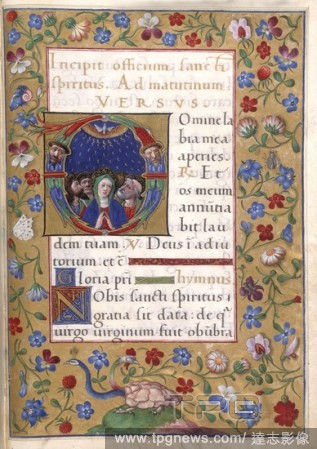 Incipit officium sancti
spiritus. Ad matutinum
VERSUS
Domine la
bia mea
aperies.
R. Et
os meum
annūtia
bit lau
dem tuam V. Deus ī adiu
torium. et c̄
Gloria pri hymnus.
Nobis sancti spiritus
gratia sit data: de q̄
virgo virginum fuit obūbra
TPG
www.tpgnews.com/ 達志影像